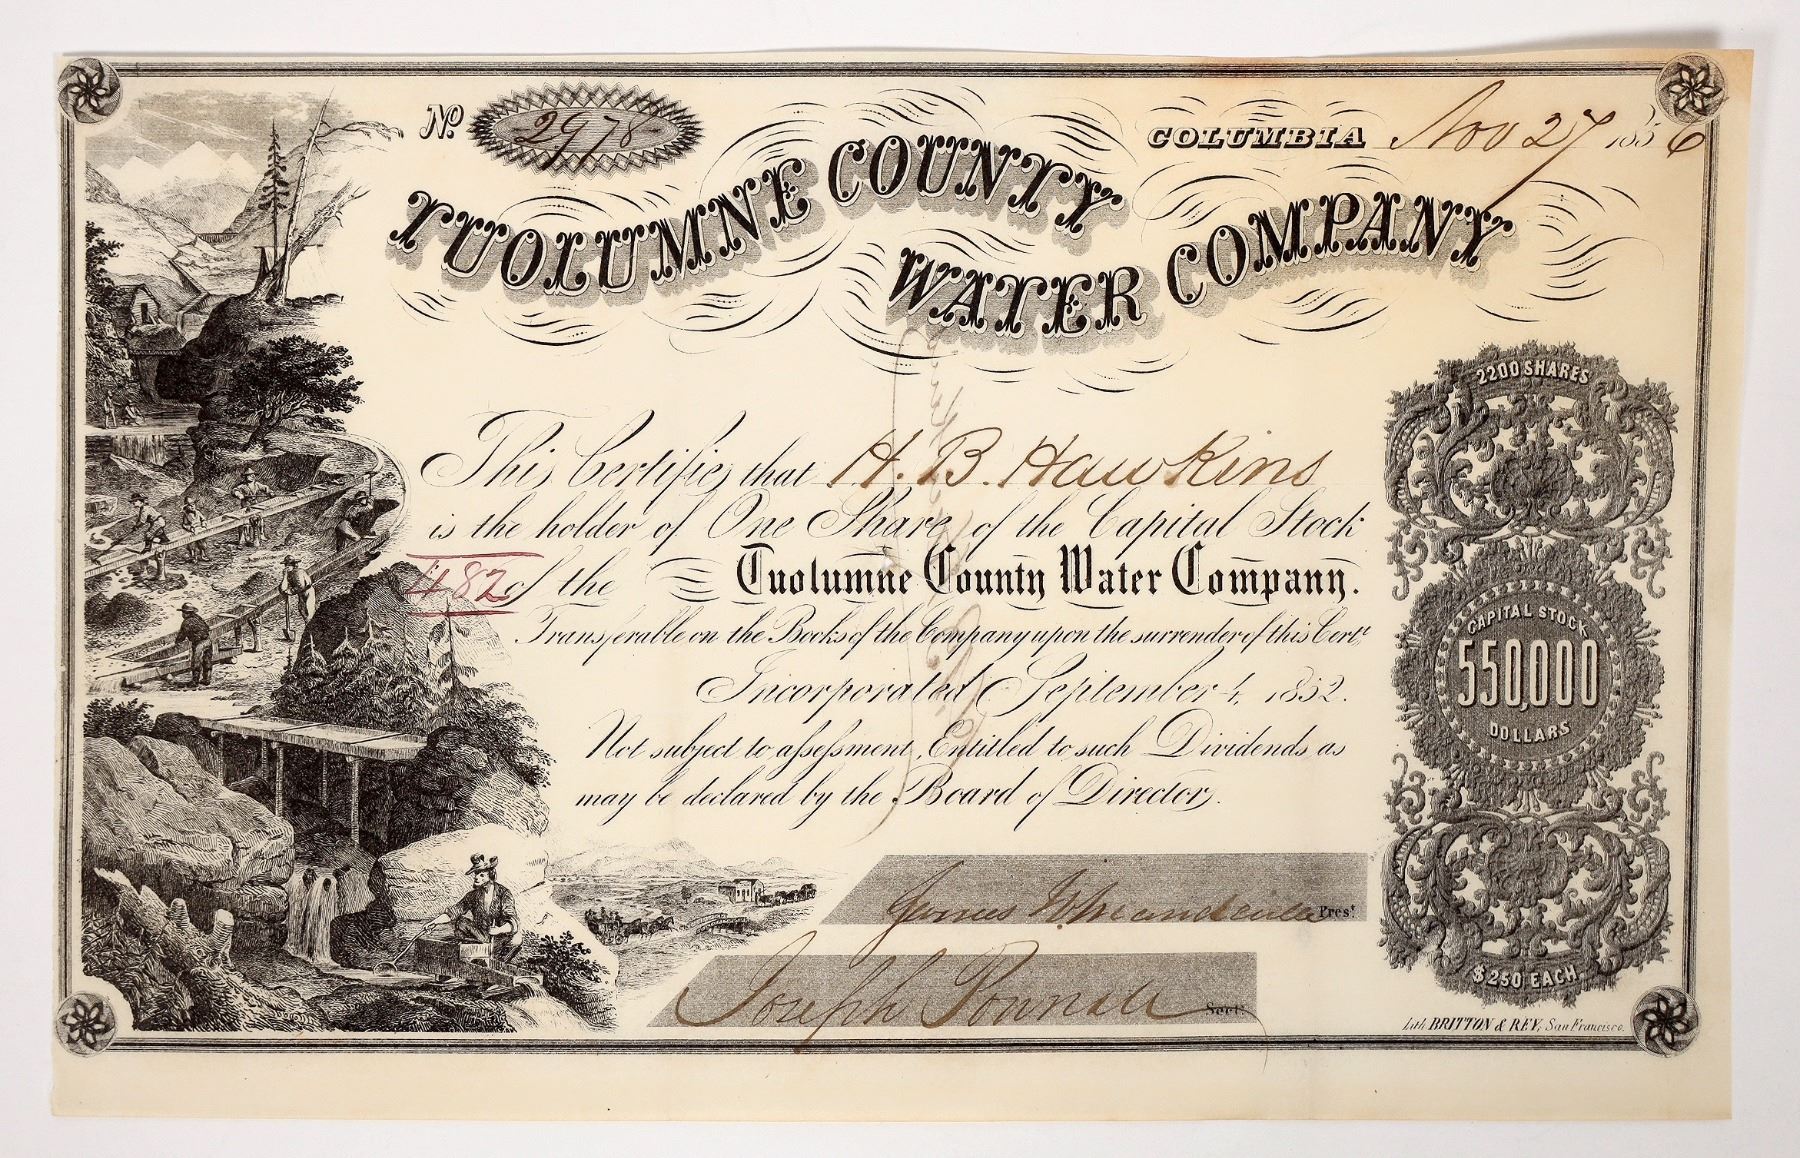 No. 2978
COLUMBIA Nov 27 1856
TUOLUMNE COUNTY
WATER COMPANY
2200 SHARES
This Certifies that H. B. Hawkins
is the holder of One Share of the Capital Stock
482 of the Tuolumne County Water Company.
Transferable on the Books of the Company upon the surrender of this Certe.
Incorporated September 4, 1852.
Not subject to assessment, Entitled to such Dividends as
may be declared by the Board of Directors.
CAPITAL STOCK
550,000
DOLLARS
$250 EACH
James Prest.
Joseph Pownall Secty.
Lith. BRITTON & REY, San Francisco.